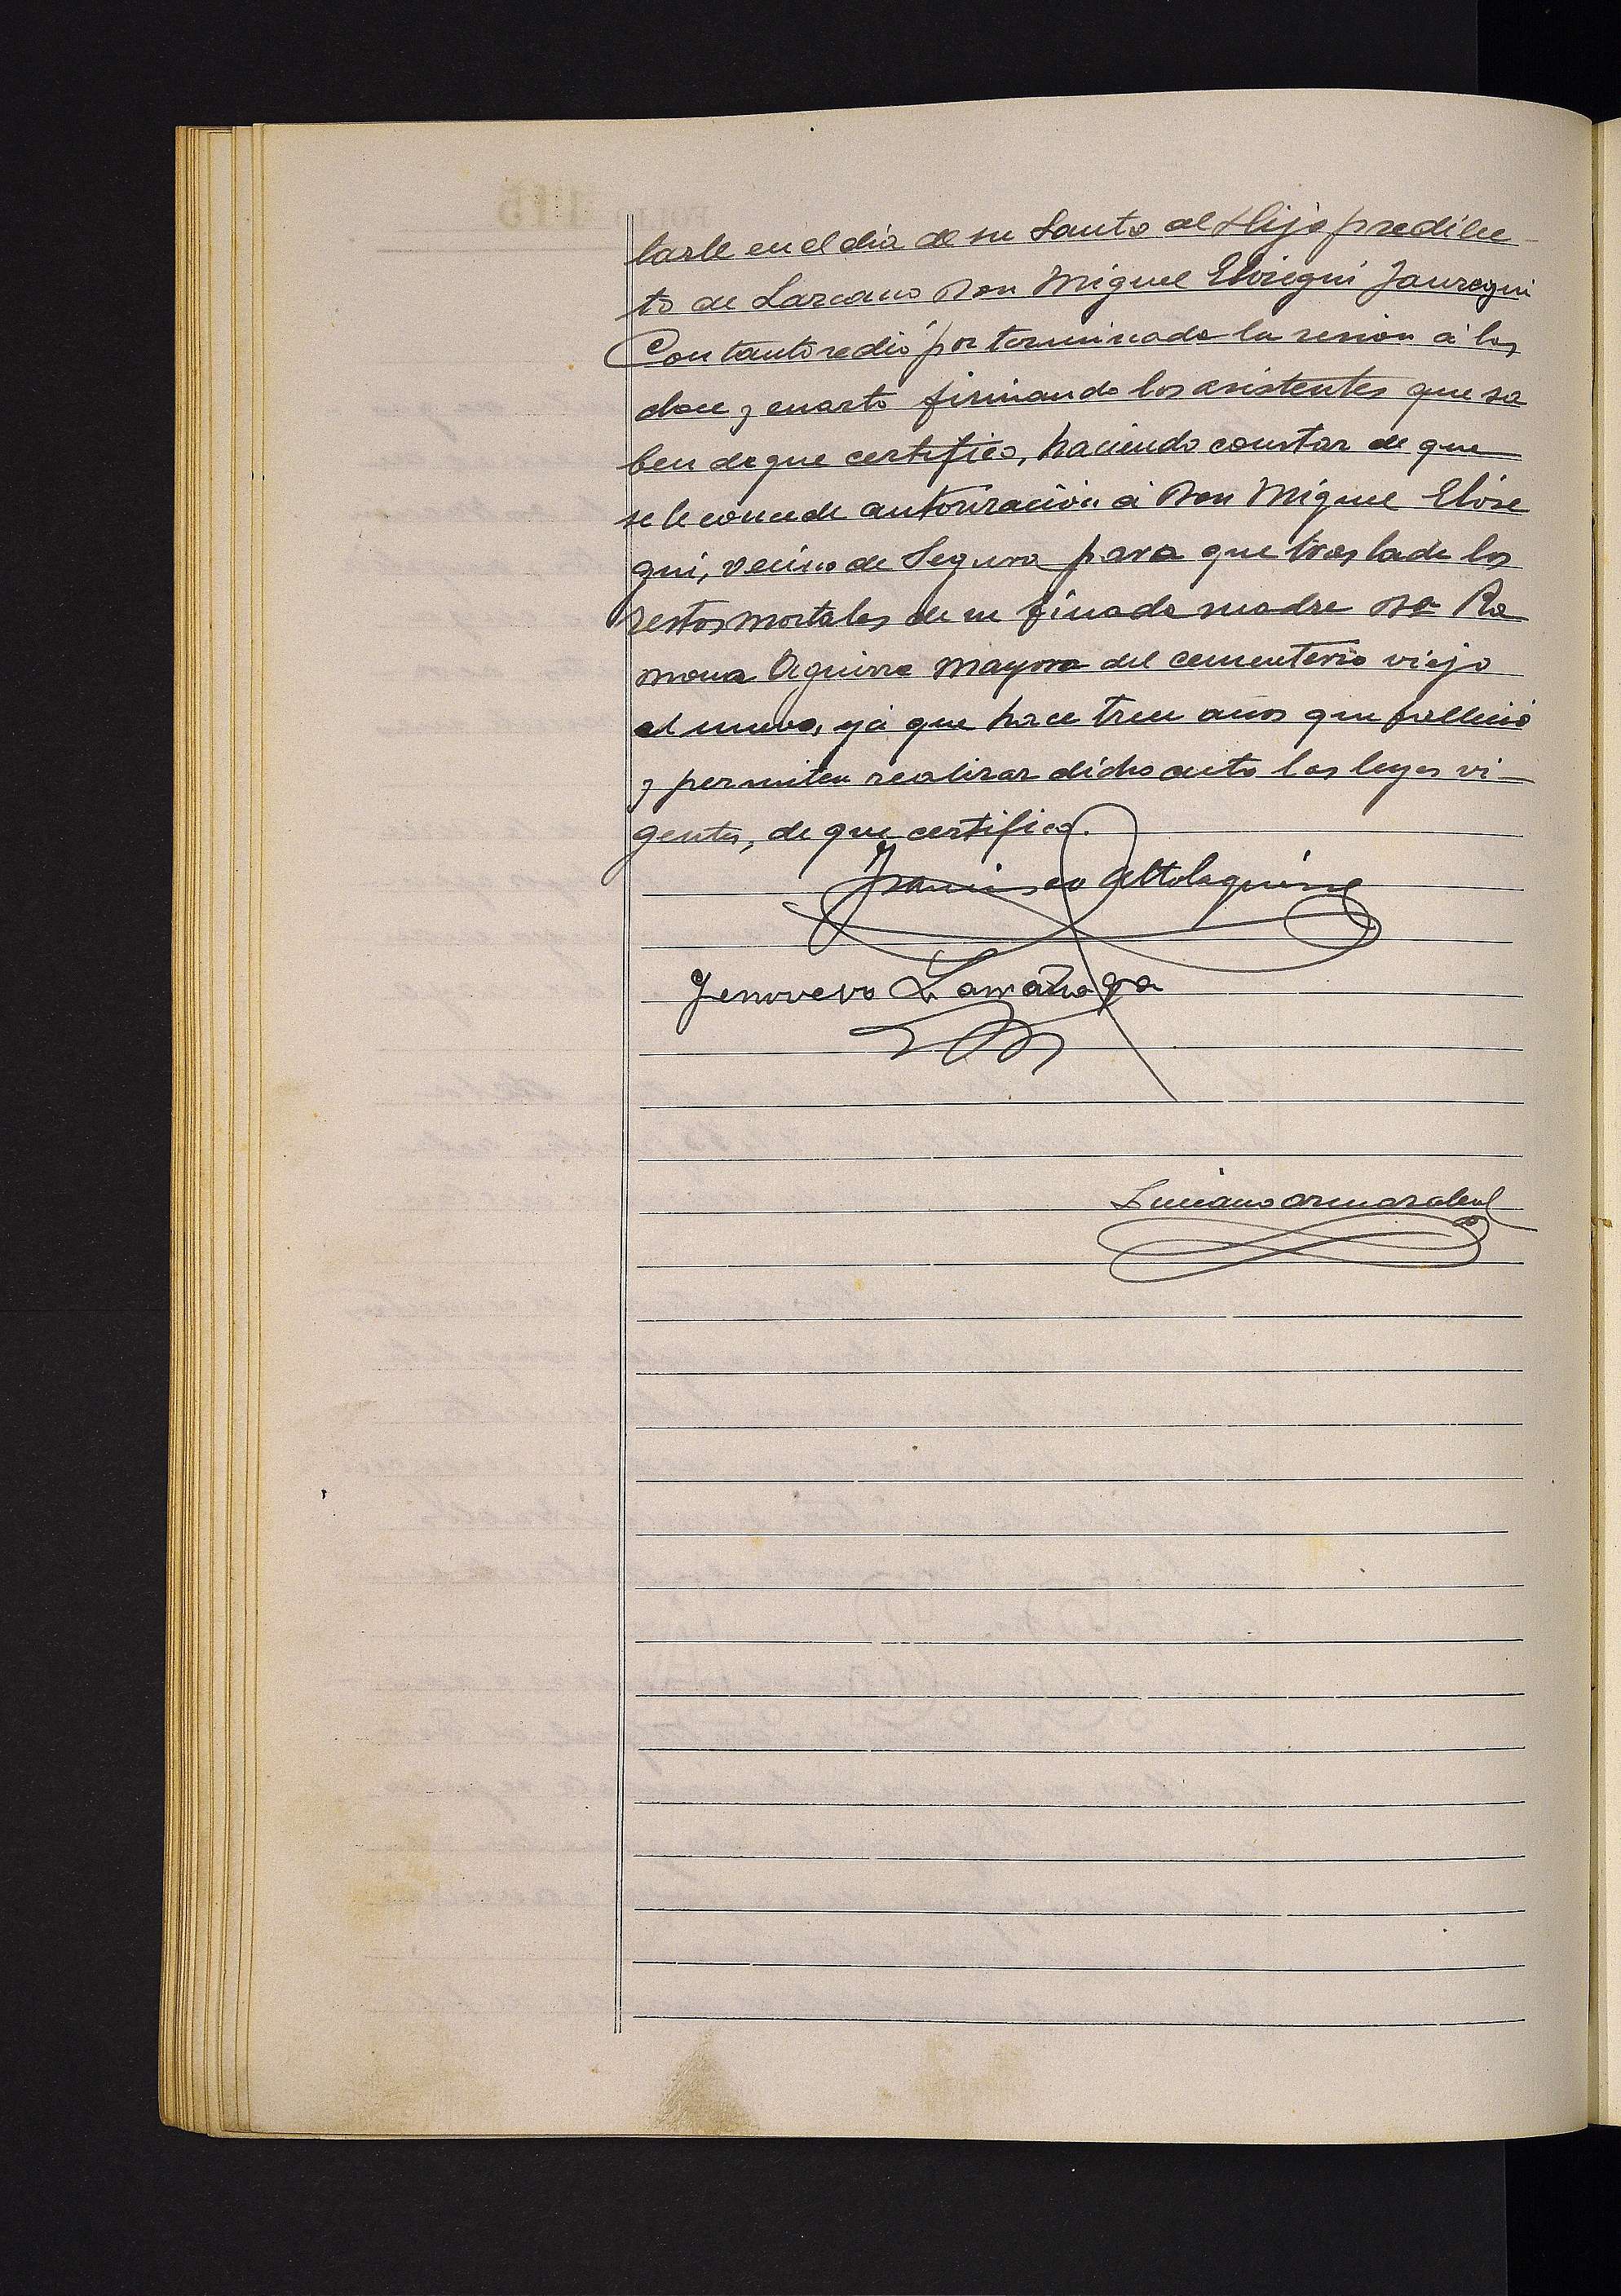 larle en el dia de su Santo al Hijo predilec-
to de Lazcano Don Miguel Elosegui Jauregui
Con tanto se dió por terminada la sesion á las
doce y cuarto firmando los asistentes que sa
ben de que certifico, haciendo constar de que
se le concede autorización á Don Miguel Elose
gui, vecino de Segura para que traslade los
restos mortales de su finada madre Dª Ra
mona Aguirre Mayora del cementerio viejo
al nuevo, yá que hace trece años que falleció
y permiten realizar dicho acto las leyes vi-
gentes, de que certifico.
Francisco Altolaguirre
Jenovevo Lamarañaga
Luciano